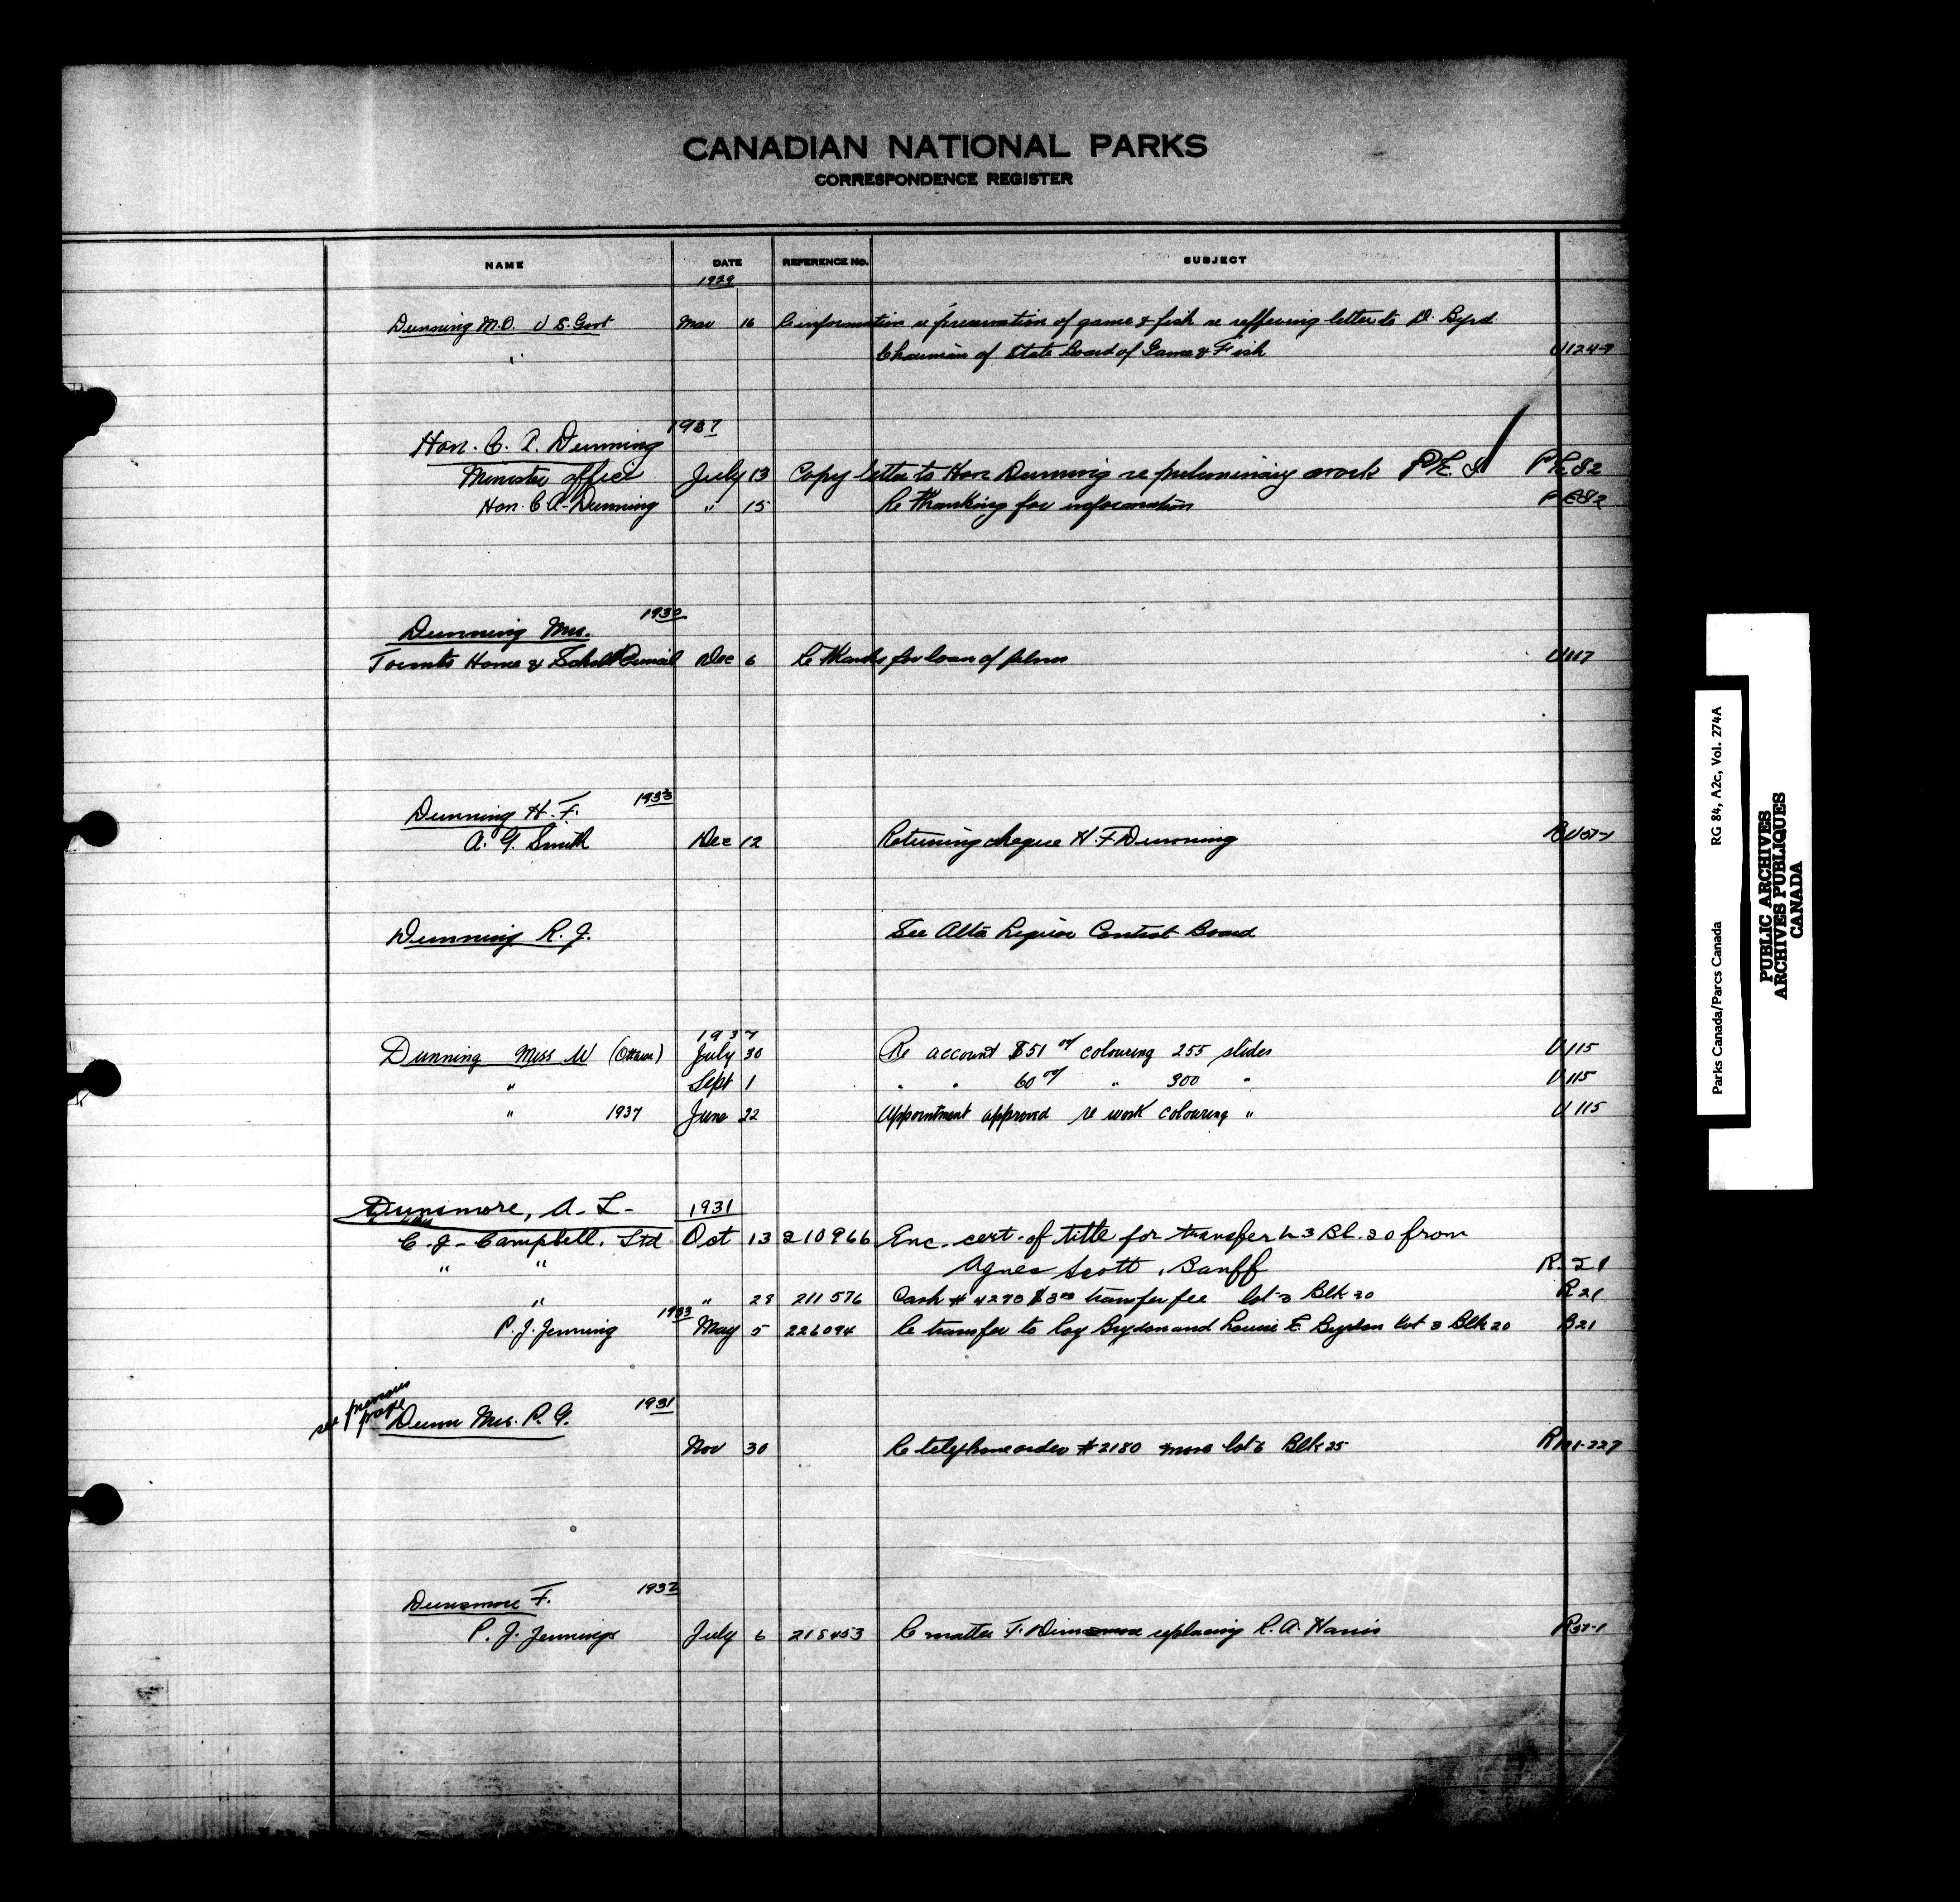 CANADIAN NATIONAL PARKS
CORRESPONDENCE REGISTER
NAME DATE REFERENCE No. SUBJECT
1929
Dunning M.O. U S. Govt Mar 16 Re information re preservation of game & fish re reffering letter to D. Byrd
" Chairman of State Board of Game & Fish U124-9
1937
Hon. C. A. Dunning
Minister office July 13 Copy letter to Hon Dunning re preliminary work P.E.I. PE82
Hon. C A. Dunning " 15 Re thanking for information PE82
1930
Dunning Mrs.
Toronto Home & School Council Dec 6 Re thanks for loan of films U117
1933
Dunning H. F.
A. G. Smith Dec 12 Returning cheque H. F Dunning
Dunning R. J. See Alta Liquor Control Board
1937
Dunning Miss W (Ottawa) July 30 Re account $51 00 colouring 255 slides U115
" Sept 1 " " 60 00 " 300 " U115
" 1937 June 22 Appointment approved re work colouring " U115
Dunsmore, A. L - 1931
C. J. Campbell, Ltd Oct 13 210966 Enc. cert. of title for transfer L 3 Bl. 20 from
" " Agnes Scott, Banff R. 21
" " 28 211576 Cash # 4293 $3 00 transfer fee lot 3 Blk 20 R21
1933
P. J. Jenning May 5 226094 Re transfer to Roy Brydon and Louise E. Brydon lot 3 Blk 20 B21
see previous page
Dunn Mrs. P. G. 1931
Nov 30 Re telephone order # 2180 lot 6 Blk 25
1932
Dunsmore F.
P. J. Jennings July 6 218453 Re matter F. Dunsmore replacing R. A. Harris R37-1
Parks Canada/Parcs Canada RG 84, A2c, Vol. 274A
PUBLIC ARCHIVES
ARCHIVES PUBLIQUES
CANADA